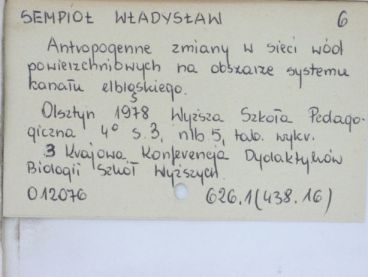 SEMPIOŁ WŁADYSŁAW 6
Antropogenne zmiany w sieci wód
powierzchniowych na obszarze systemu
kanału elbląskiego.
Olsztyn 1978 Wyższa Szkoła Pedago-
giczna 4° s. 3, nlb 5, tab. wykr.
3 Krajowa Konferencja Dydaktyków
Biologii Szkół Wyższych.
012076 626.1(438.16)